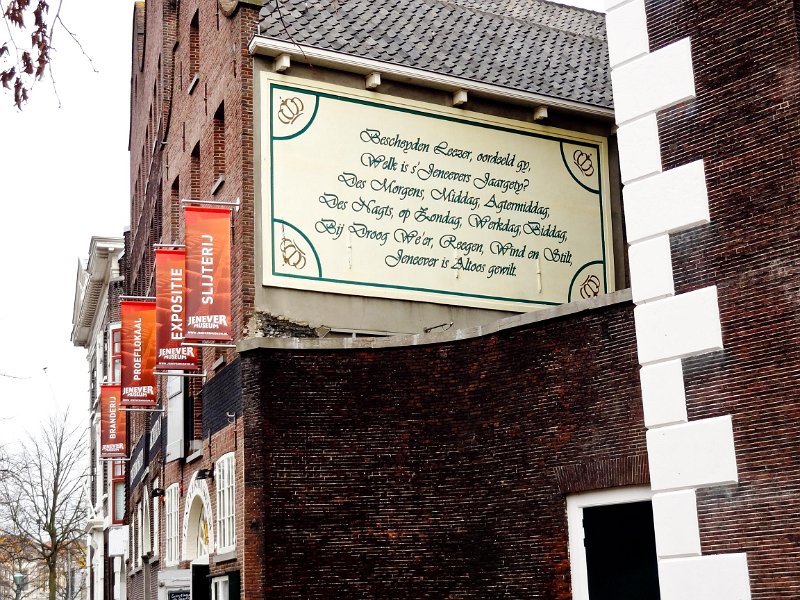 Bescheyden Leezer, oordeeld gy,
Welk is s'Jeneevers Jaargety?
Des Morgens, Middag, Agtermiddag,
Des Nagts, op Zondag, Werkdag, Biddag,
Bij Droog We'er, Reegen, Wind en Stilt,
Jeneever is Altoos gewilt.
SLIJTERIJ
JENEVER
MUSEUM
EXPOSITIE
JENEVER
MUSEUM
PROEFLOKAAL
JENEVER
MUSEUM
BRANDERIJ
JENEVER
MUSEUM